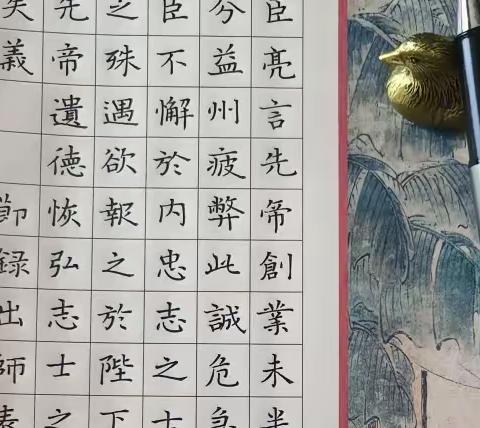 臣亮言先帝創業未半
分益州疲弊此誠危急
臣不懈於内忠志之士
之殊遇欲報之於陛下
先帝遺德恢弘志士之
失義
節録出師表